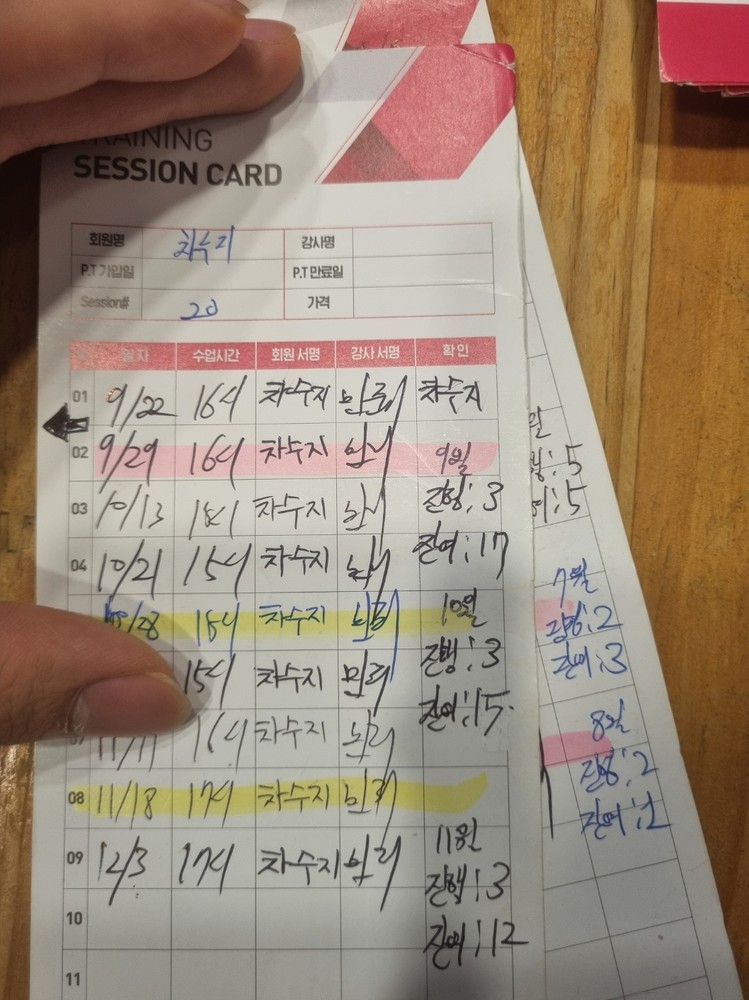 TRAINING
SESSION CARD
회원명 차수지 강사명
P.T 가입일 P.T 만료일
Session# 20 가격
일자 수업시간 회원 서명 강사 서명 확인
01 9/22 16시 차수지 차수지
02 9/29 16시 차수지 9월
03 10/13 18시 차수지 진행:3
04 10/21 15시 차수지 잔여:17
10/28 18시 차수지 10월
15시 차수지 진행:3
07 11/11 16시 차수지 잔여:15
08 11/18 17시 차수지
09 12/3 17시 차수지 11월
진행:3
10 잔여:12
11
:5
:5
7월
진행:2
잔여:3
8월
진행:2
잔여:1